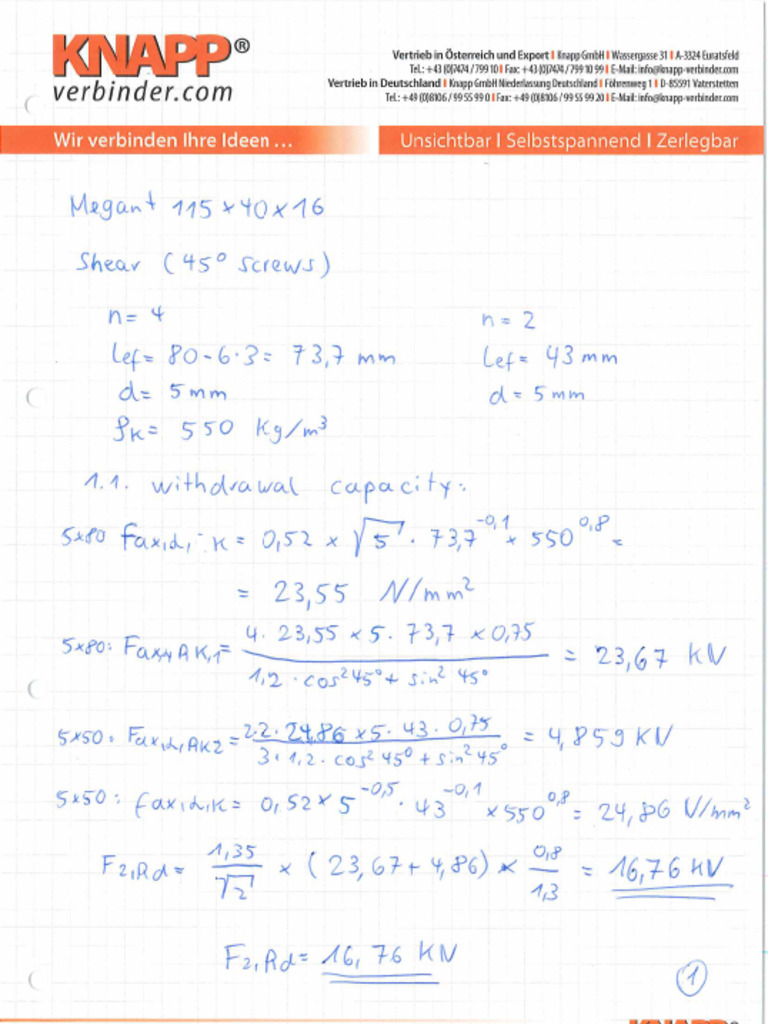 KNAPP®
verbinder.com
Vertrieb in Österreich und Export I Knapp GmbH I Wassergasse 31 I A-3324 Euratsfeld
Tel.: +43 (0)7474 / 799 10 I Fax: +43 (0)7474 / 799 10 99 I E-Mail: info@knapp-verbinder.com
Vertrieb in Deutschland I Knapp GmbH Niederlassung Deutschland I Föhrenweg 1 I D-85591 Vaterstetten
Tel.: +49 (0)8106 / 99 55 99 0 I Fax: +49 (0)8106 / 99 55 99 20 I E-Mail: info@knapp-verbinder.com
Wir verbinden Ihre Ideen ... Unsichtbar I Selbstspannend I Zerlegbar
Megant 115 x 40 x 16
Shear (45° screws)
n= 4 n= 2
lef= 80-6·3= 73,7 mm lef= 43 mm
d= 5 mm d= 5 mm
ρK= 550 Kg/m³
1.1. withdrawal capacity:
5x80 fax,α,K = 0,52 x √5 · 73,7^-0,1 x 550^0,8 =
= 23,55 N/mm²
5x80: Fax,α,RK,1= 4·23,55 x 5·73,7 x 0,75 / 1,2·cos²45°+ sin²45° = 23,67 KN
5x50: Fax,α,RK2= 2·24,86 x 5·43·0,75 / 3·1,2·cos²45°+sin²45° = 4,859 KN
5x50: fax,α,K= 0,52 x 5^-0,5 · 43^-0,1 x 550^0,8 = 24,86 N/mm²
F2,Rd= 1,35/√2 x (23,67+4,86) x 0,8/1,3 = 16,76 KN
F2,Rd= 16,76 KN
1
KNAPP®